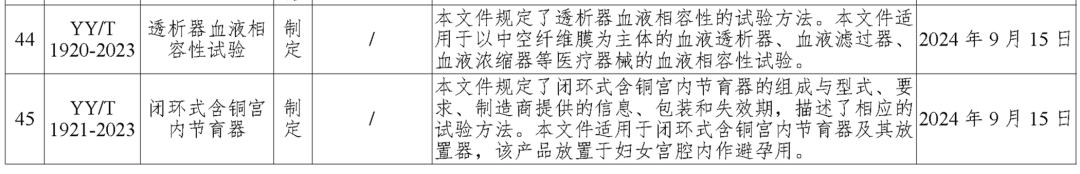 44
YY/T
1920-2023
透析器血液相
容性试验
制
定
/
本文件规定了透析器血液相容性的试验方法。本文件适
用于以中空纤维膜为主体的血液透析器、血液滤过器、
血液浓缩器等医疗器械的血液相容性试验。
2024 年 9 月 15 日
45
YY/T
1921-2023
闭环式含铜宫
内节育器
制
定
/
本文件规定了闭环式含铜宫内节育器的组成与型式、要
求、制造商提供的信息、包装和失效期，描述了相应的
试验方法。本文件适用于闭环式含铜宫内节育器及其放
置器，该产品放置于妇女宫腔内作避孕用。
2024 年 9 月 15 日